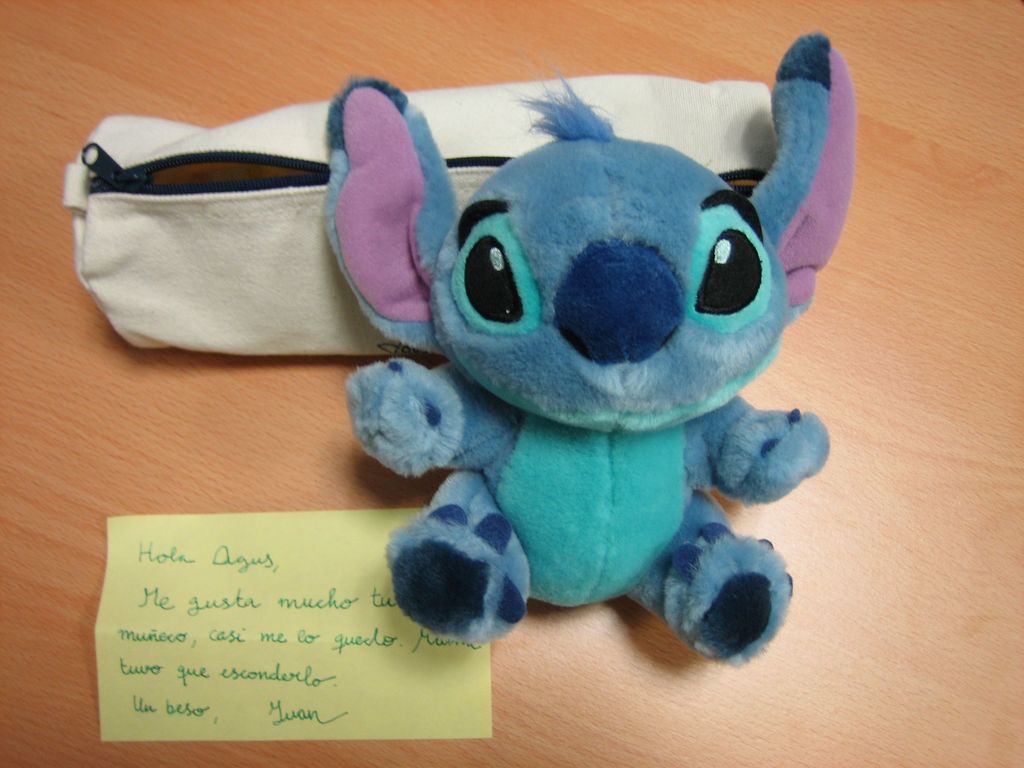 Hola Agus,
Me gusta mucho tu
muñeco, casi me lo quedo. Mamá
tuvo que esconderlo.
Un beso, Juan